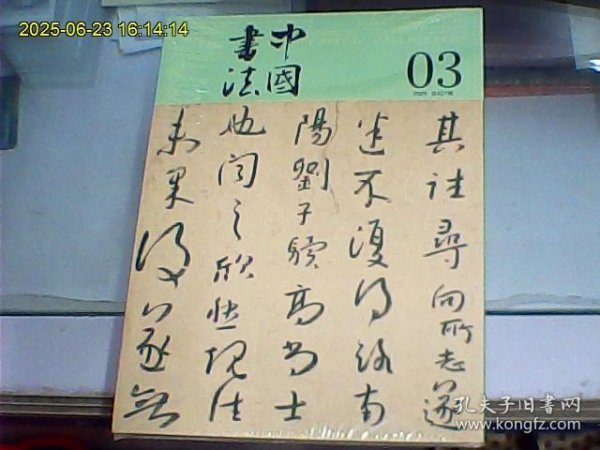 2025-06-23 16:14:14
中國
書法
03
其往尋向所志遂
迷不復得路南
陽劉子驥高尚士
也聞之欣然規往
未果遂無
孔夫子旧书网
www.kongfz.com